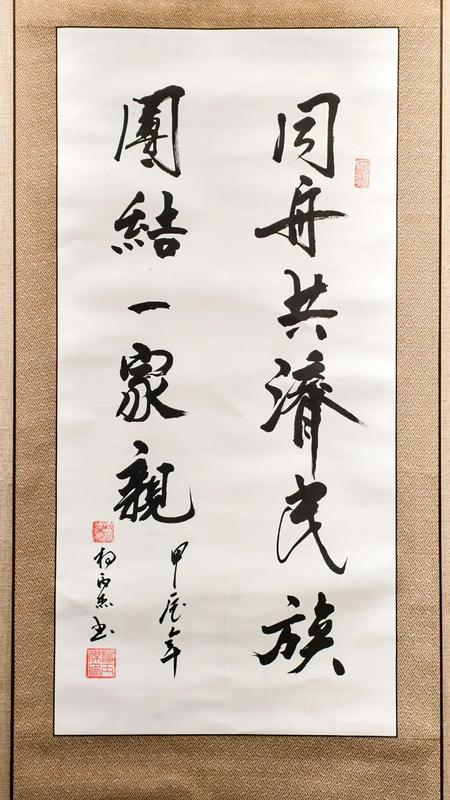 同舟共濟民族
團結一家親
甲辰年
楊
書